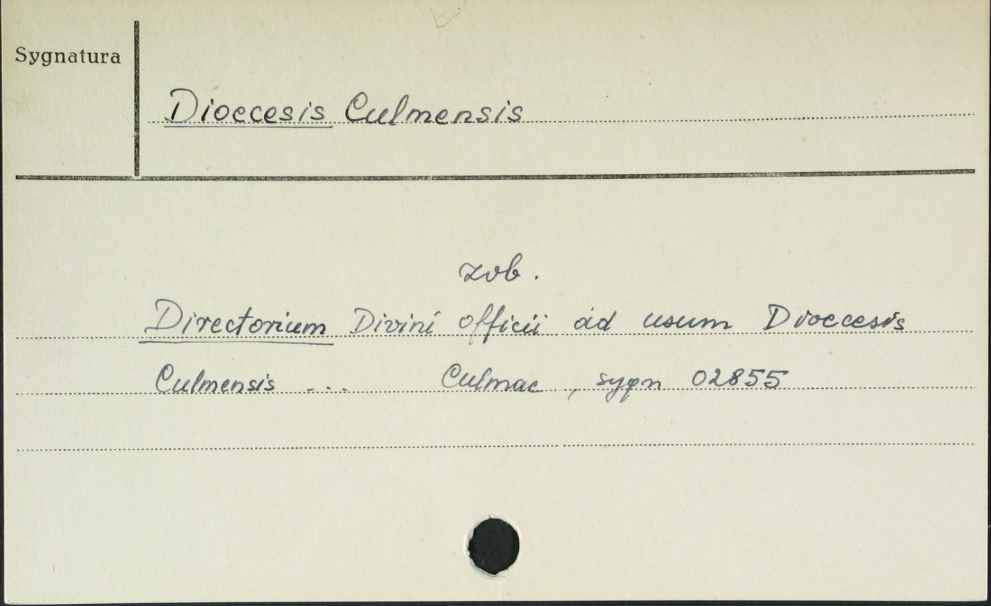 Sygnatura
Dioecesis Culmensis
zob.
Directorium Divini officii ad usum Dioecesis
Culmensis ... Culmae, sygn 02855